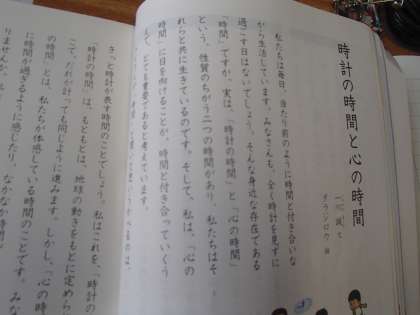 時計の時間と心の時間
一川 誠 文
私たちは毎日、当たり前のように時間と付き合いな
がら生活しています。みなさんも、全く時計を見ずに
過ごす日はないでしょう。そんな身近な存在である
「時間」ですが、実は、「時計の時間」と「心の時間」
という、性質のちがう二つの時間があり、私たちはそ
れらと共に生きているのです。そして、私は、「心の
時間」に目を向けることが、時間と付き合っていくう
えで、とても重要であると考えています。
きっと時計が表す時間のことでしょう。私はこれを、「時計の
時間」は、もともとは、地球の動きをもとに定めら
こで、だれが計っても同じように進みます。しかし、「心の時
の時間」とは、私たちが体感している時間のことです。みな
に時間が過ぎるように感じたり、なかなか時間
りませんか。